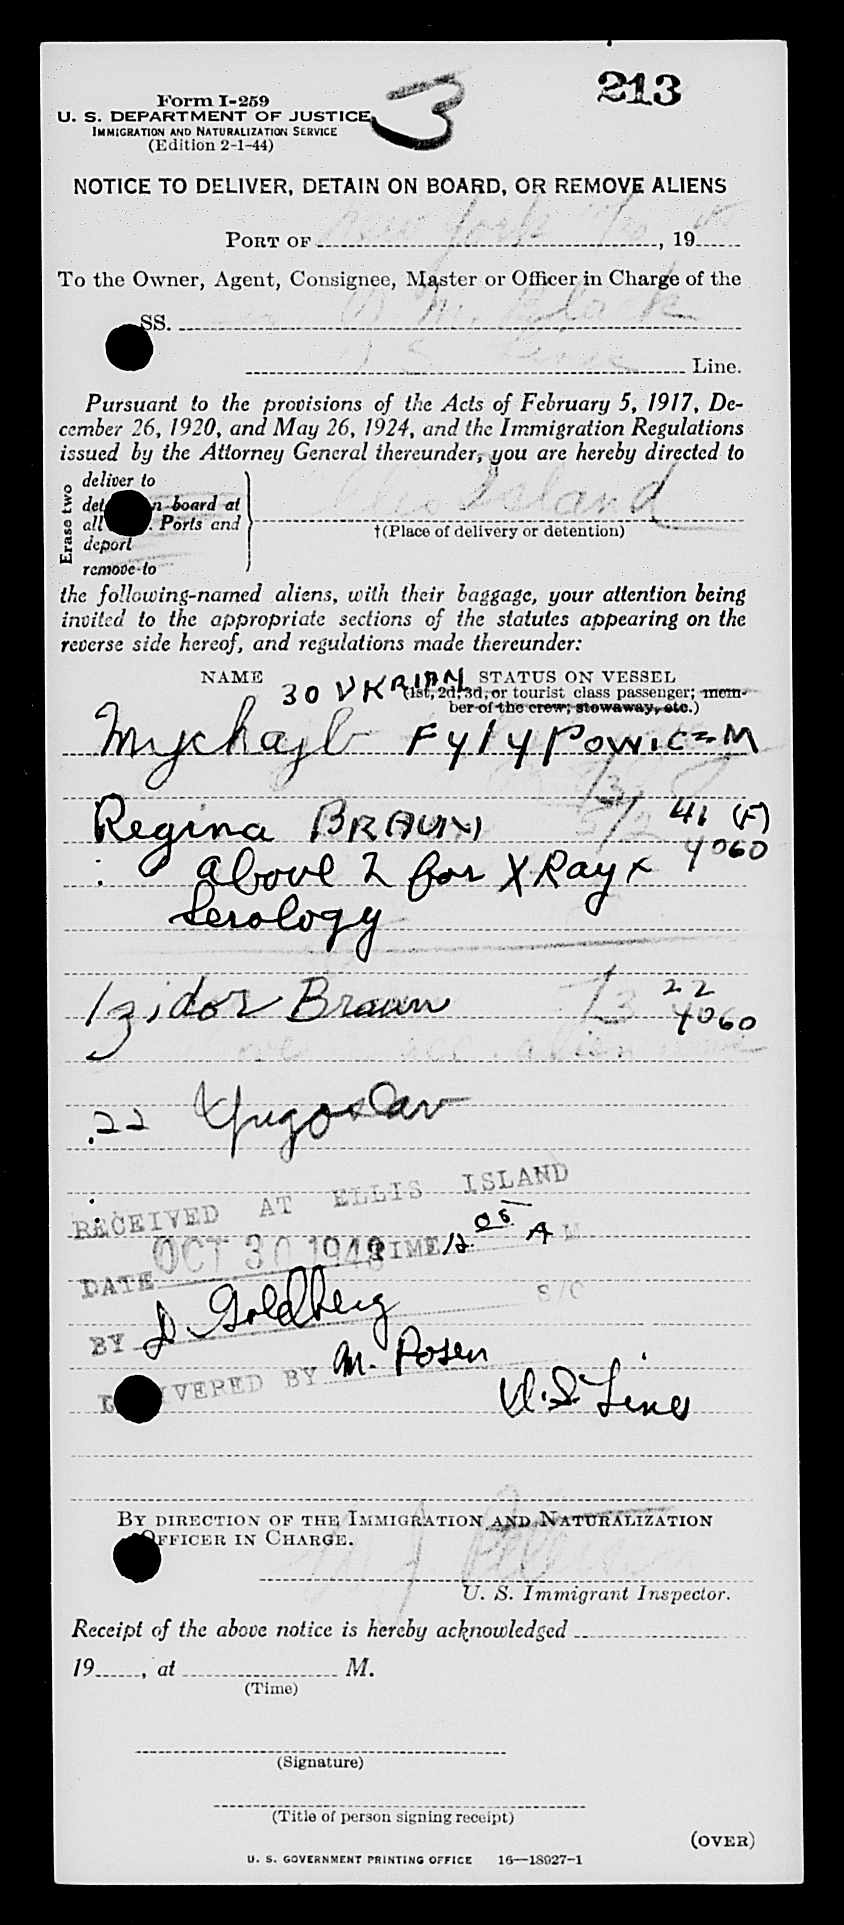 213
3
Form I-259
U. S. DEPARTMENT OF JUSTICE
IMMIGRATION AND NATURALIZATION SERVICE
(Edition 2-1-44)
NOTICE TO DELIVER, DETAIN ON BOARD, OR REMOVE ALIENS
PORT OF New York, 19
To the Owner, Agent, Consignee, Master or Officer in Charge of the
SS. M. Black
U S Lines Line.
Pursuant to the provisions of the Acts of February 5, 1917, De-
cember 26, 1920, and May 26, 1924, and the Immigration Regulations
issued by the Attorney General thereunder, you are hereby directed to
Erase two
deliver to
det n board at
all . Ports and
deport
remove to
Ellis Island
†(Place of delivery or detention)
the following-named aliens, with their baggage, your attention being
invited to the appropriate sections of the statutes appearing on the
reverse side hereof, and regulations made thereunder:
NAME STATUS ON VESSEL
30 UKRIAN (1st, 2d, 3d, or tourist class passenger; mem-
ber of the crew; stowaway, etc.)
Mychajlo Fylypowicz M
Regina BRAUN 41 (F)
4060
above 2 for X Ray &
Serology
Izidor Braun 22
4060
22 Yugoslav
RECEIVED AT ELLIS ISLAND
DATE OCT 30 1948 TIME 12 05 A M
BY D. Goldberg S/O
DELIVERED BY M. Rosen
U.S. Lines
BY DIRECTION OF THE IMMIGRATION AND NATURALIZATION
OFFICER IN CHARGE.
U. S. Immigrant Inspector.
Receipt of the above notice is hereby acknowledged
19, at M.
(Time)
(Signature)
(Title of person signing receipt)
(OVER)
U. S. GOVERNMENT PRINTING OFFICE 16—18027-1